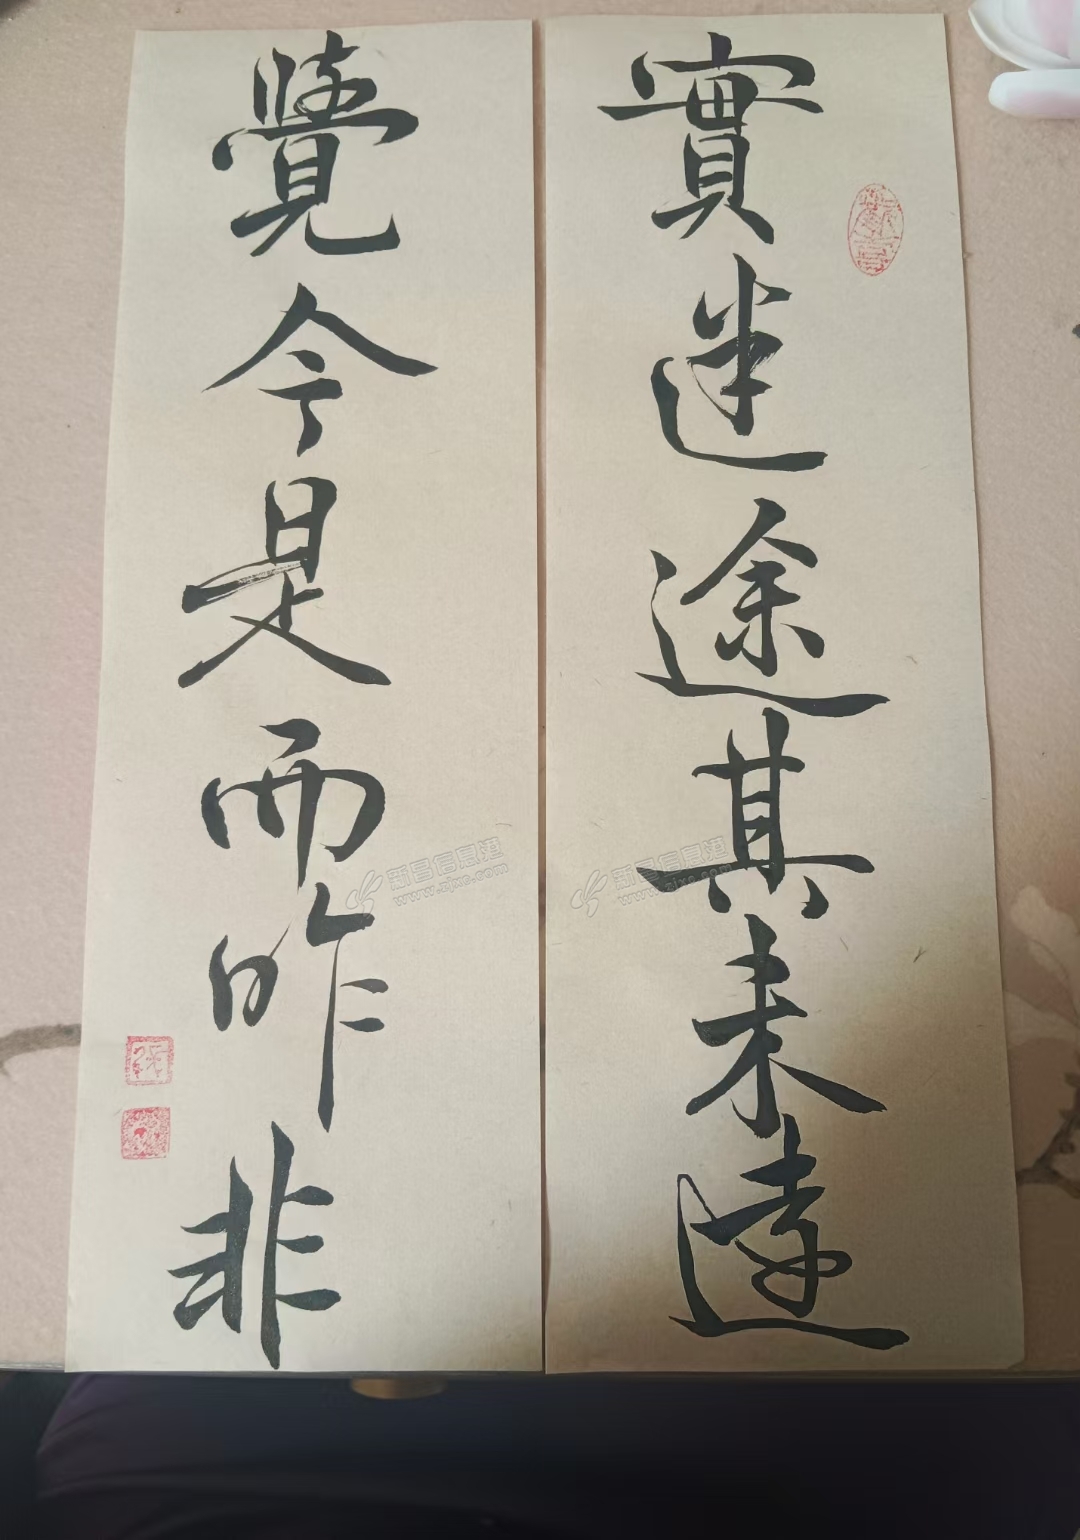 實迷途其未遠
覺今是而昨非
新昌信息港
www.zjxc.com
新昌信息港
www.zjxc.com